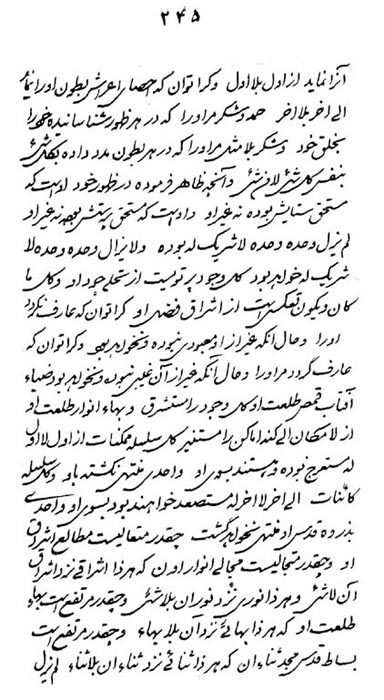 ۲۴۵
آنرا نماید از اول بلا اول و کرا توان که احصای اعراش بطون او را نماید
الی اخر بلا اخر حمد و شکر مر او را که در هر ظهور شناسانیده خود را
بخلق خود و شکر بلا مثل مر او را که در هر بطون مدد داده کلشئ
بنفس کلشئ لا من شئ و آنچه ظاهر فرموده در ظهور خود اوست که
مستحق ستایش بوده نه غیر او و اوست که مستحق پرستش بوده نه غیر او
لم یزل وحده وحده لا شریک له بوده و لا یزال وحده وحده لا
شریک له خواهد بود کل وجود پرتویست از تجلی جود او و کل ما
کان و یکون تعکسی است از اشراق فضل او کرا توان که عارف نگردد
او را و حال آنکه غیر از او معبودی نبوده و نخواهد بود و کرا توان که
عارف گردد مر او را و حال آنکه غیر از آن غیبی نبوده و نخواهد بود ضیاء
آفتاب قمص طلعت او کل وجود را مستشرق و بهاء انوار طلعت او
از لا امکان الی کند اماکن را مستنیر کل سلسله ممکنات از اول لا اول
له مستعرج بوده و هستند بسوی او واحدی منتهی نگشته باو و کل سلسله
کائنات الی اخر لا اخر له مستصعد خواهند بود بسوی او واحدی
بذروه قدس او منتهی نخواهد گشت چقدر متعالیست مطالع اشراق
او و چقدر متجالیست مجالی انوار او ن که هر ذا اشراقی نزد اشراق
آن لا شئ و هر ذا نوری نزد نور ان بلا شئ و چقدر مرتفع است بهاء
طلعت او که هر ذا بهائی نزد آن بلا بهاء و چقدر مرتفع است
بساط قدس مجد ثناء ان که هر ذا ثنائی نزد ثناء ان بلا ثناء لم یزل